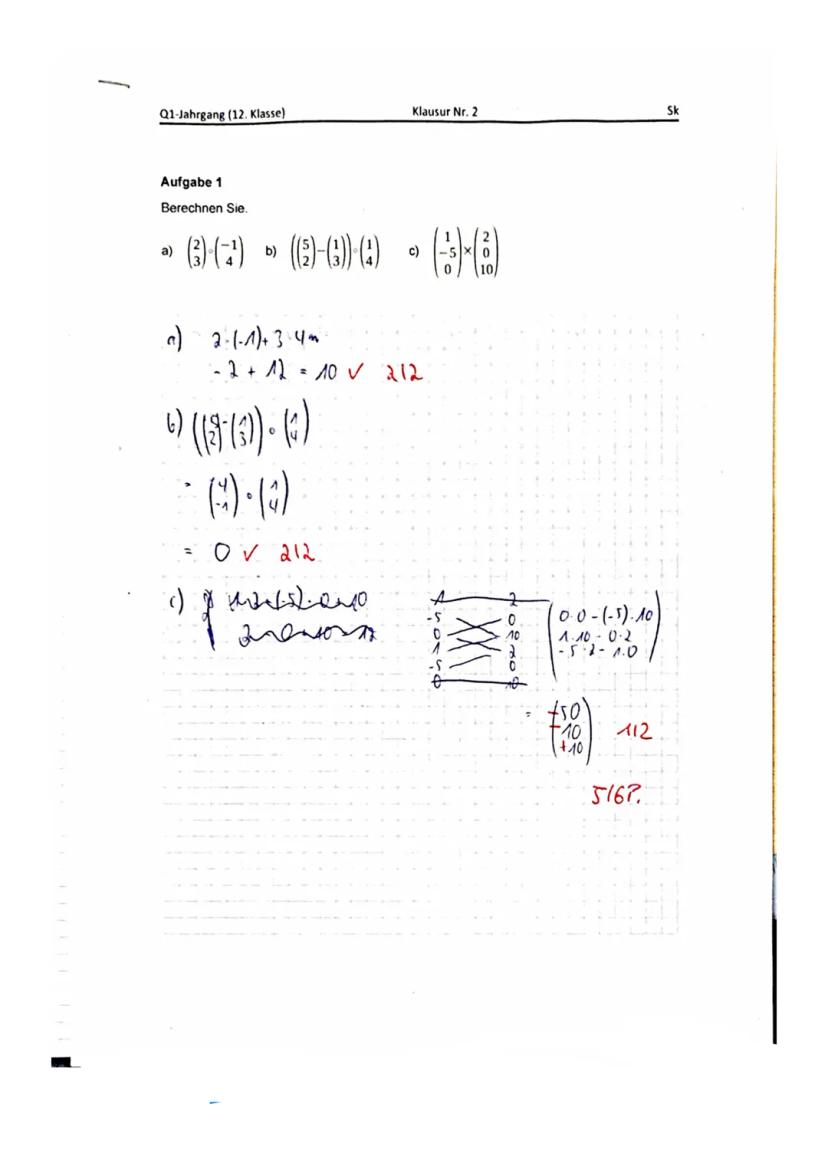 Q1-Jahrgang (12. Klasse) Klausur Nr. 2 Sk
Aufgabe 1
Berechnen Sie.
a) (2 3)∘(-1 4) b) ((5 2)-(1 3))∘(1 4) c) (1 -5 0)×(2 0 10)
a) 2·(-1)+3·4=
-2 + 12 = 10 ✓ 2/2
b) ((5 2)-(1 3))∘(1 4)
= (4 -1)∘(1 4)
= 0 ✓ 2/2
c)
1 2
-5 0
0 10
1 2
-5 0
0 10
0·0-(-5)·10
1·10-0·2
-5·2-1·0
= (+50 -10 +10) 1/2
5/6P.